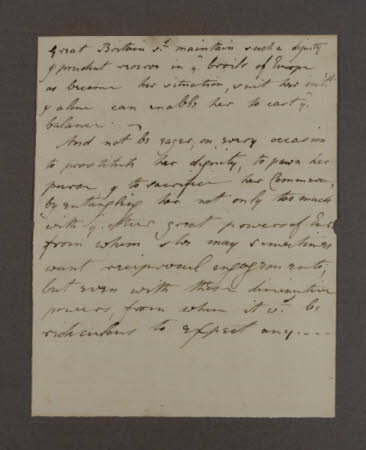 Great Britain sd. maintain such a dignity
& prudent reserve in ye. broils of Europe
as become her situation, suit her
& alone can enable her to cast ye.
balance.
And not be eager, on every occasion
to prostitute her dignity, to pawn her
& to sacrifice her Commerce,
by entangling her not only too much
with ye. other great powers of
from whom she may sometimes
want reciprocal engagements,
but even with those diminutive
powers, from whom it wd. be
ridiculous to expect any....